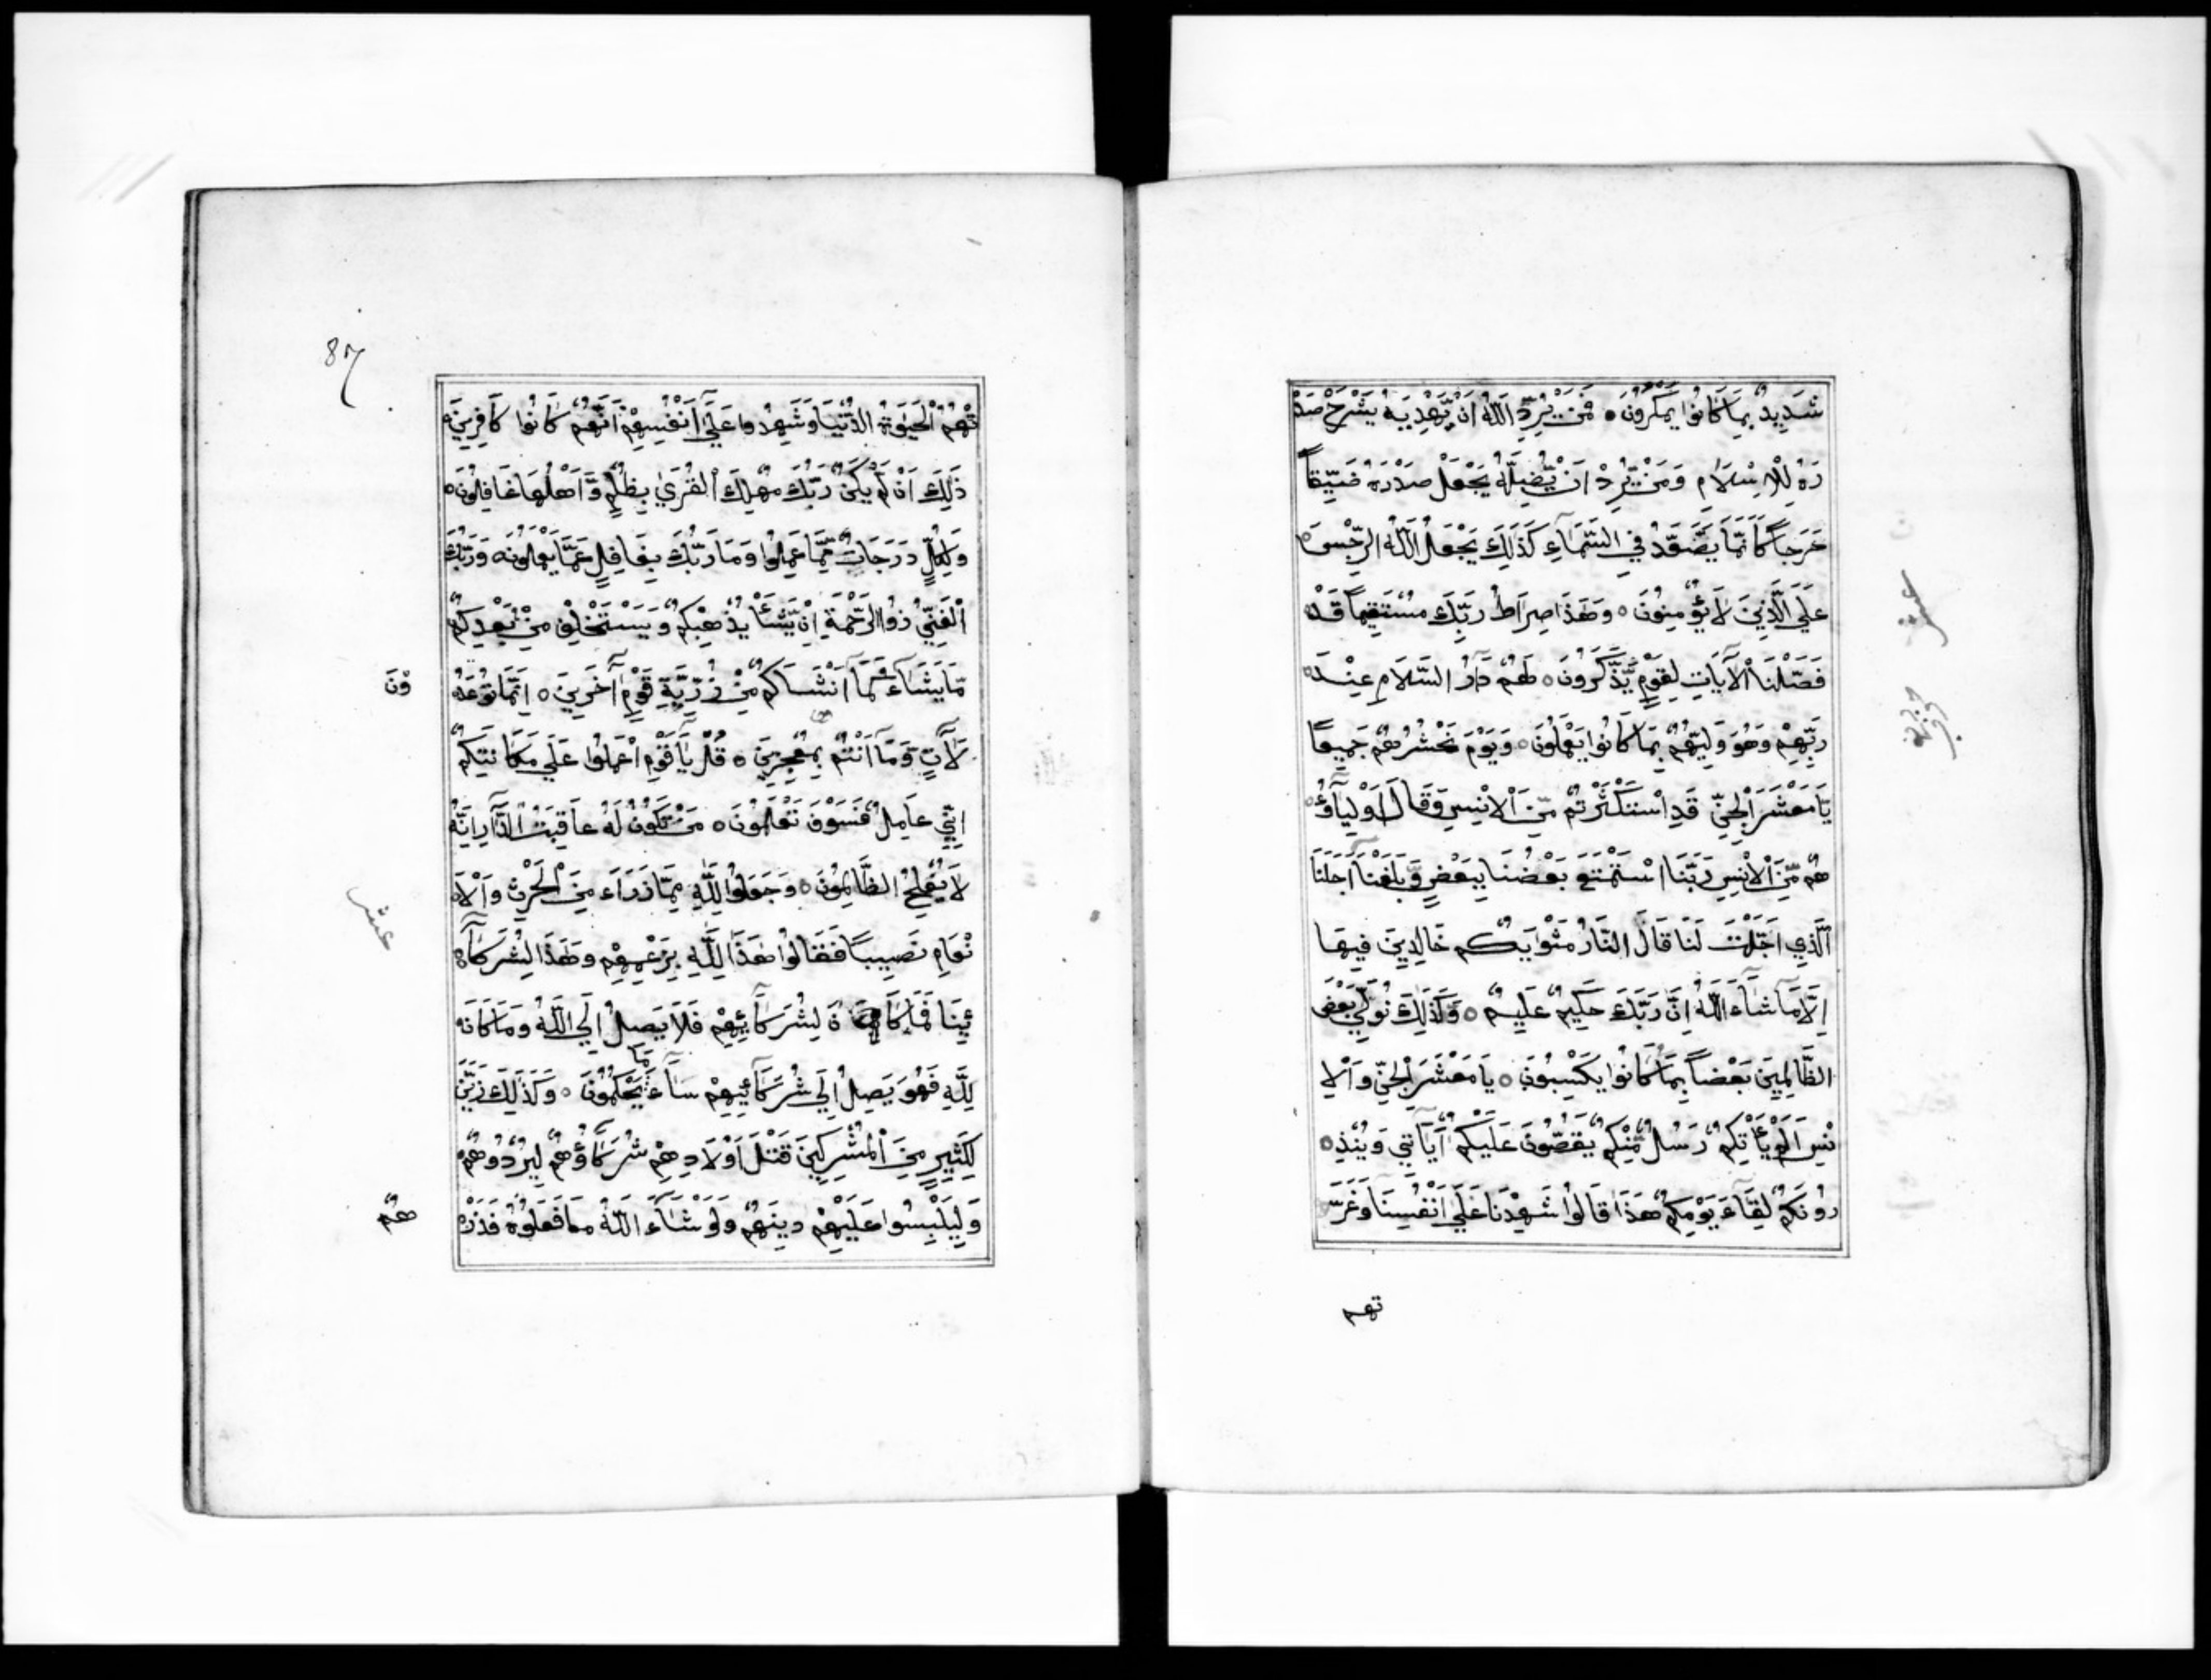 شَدِيدٌ بِمَا كَانُوا يَمْكُرُونَ ه فَمَنْ يُرِدِ اللَّهُ اَنْ يَهْدِيَهُ يَشْرَحْ صَدْ
رَهُ لِلْاِسْلَامِ وَمَنْ يُرِدْ اَنْ يُضِلَّهُ يَجْعَلْ صَدْرَهُ ضَيِّقاً
حَرَجاً كَاَنَّمَا يَصَّعَّدُ فِي السَّمَاءِ كَذَلِكَ يَجْعَلُ اللَّهُ الرِّجْسَ
عَلَي الَّذِينَ لَا يُؤْمِنُونَ ه وَهَذَا صِرَاطُ رَبِّكَ مُسْتَقِيماً قَدْ
فَصَّلْنَا الْآيَاتِ لِقَوْمٍ يَّذَّكَّرُونَ ه لَهُمْ دَارُ السَّلَامِ عِنْدَ
رَبِّهِمْ وَهُوَ وَلِيُّهُمْ بِمَا كَانُوا يَعْمَلُونَ ه وَيَوْمَ نَحْشُرُهُمْ جَمِيعاً
يَا مَعْشَرَ الْجِنِّ قَدِ اسْتَكْثَرْتُمْ مِّنَ الْاِنْسِ وَقَالَ اَوْلِيَآؤُ
هُمْ مِّنَ الْاِنْسِ رَبَّنَا اسْتَمْتَعَ بَعْضُنَا بِبَعْضٍ وَّبَلَغْنَا اَجَلَنَا
الَّذِي اَجَّلْتَ لَنَا قَالَ النَّارُ مَثْوَايكُم خَالِدِينَ فِيهَا
اِلَّا مَا شَآءَ اللَّهُ اِنَّ رَبَّكَ حَكِيمٌ عَلِيمٌ ه وَكَذَلِكَ نُوَلِّي بَعْضَ
الظَّالِمِينَ بَعْضاً بِمَا كَانُوا يَكْسِبُونَ ه يَا مَعْشَرَ الْجِنِّ وَالْاِ
نْسِ اَلَمْ يَاْتِكُمْ رَسُلٌ مِّنْكُمْ يَقُصُّونَ عَلَيْكُمْ آيَاتِي وَيُنْذِ
رُونَكُمْ لِقَآءَ يَوْمِكُمْ هَذَا قَالُوا شَهِدْنَا عَلَي اَنْفُسِنَا وَغَرَّ
تهم
عشر
87
تْهُمُ الْحَيٰوةُ الدُّنْيَا وَشَهِدُوا عَلَي اَنْفُسِهِمْ اَنَّهُمْ كَانُوا كَافِرِينَ ه
ذَلِكَ اَنْ لَمْ يَكُنْ رَبُّكَ مُهْلِكَ الْقُرَيٰ بِظُلْمٍ وَّاَهْلُهَا غَافِلُونَ ه
وَلِكُلٍّ دَرَجَاتٌ مِّمَّا عَمِلُوا وَمَا رَبُّكَ بِغَافِلٍ عَمَّا يَعْمَلُونَ ه وَرَبُّكَ
الْغَنِيُّ ذُوا الرَّحْمَةِ اِنْ يَّشَأْ يُذْهِبْكُمْ وَيَسْتَخْلِفْ مِنْ بَعْدِكُمْ
مَّا يَشَاءُ كَمَا اَنْشَاَكُمْ مِنْ ذُرِّيَّةِ قَوْمٍ آخَرِينَ ه اِنَّمَا تُوعَدُ
وْنَ
لَآتٍ وَّمَا اَنْتُمْ بِمُعْجِزِينَ ه قُلْ يَا قَوْمِ اعْمَلُوا عَلَي مَكَانَتِكُمْ
اِنِّي عَامِلٌ فَسَوْفَ تَعْلَمُونَ ه مَنْ تَكُونُ لَهُ عَاقِبَتُ الدَّارِ اِنَّهُ
لَا يُفْلِحُ الظَّالِمُونَ ه وَجَعَلُوا لِلَّهِ مِمَّا ذَرَاَءَ مِنَ الْحَرْثِ وَالْاَ
عشر
نْعَامِ نَصِيباً فَقَالُوا هَذَا لِلَّهِ بِزَعْمِهِمْ وَهَذَا لِشُرَكَآ
ئِنَا فَمَا كَانَ لِشُرَكَآئِهِمْ فَلَا يَصِلُ اِلَي اللَّهِ وَمَا كَانَ
لِلَّهِ فَهُوَ يَصِلُ اِلَي شُرَكَآئِهِمْ سَآءَ مَا يَحْكُمُونَ ه وَكَذَلِكَ زَيَّنَ
لِكَثِيرٍ مِنَ الْمُشْرِكِينَ قَتْلَ اَوْلَادِهِمْ شُرَكَآؤُهُمْ لِيُرْدُوهُمْ
وَلِيَلْبِسُوا عَلَيْهِمْ دِينَهُمْ وَلَوْ شَآءَ اللَّهُ مَا فَعَلُوهُ فَذَرْ
هُمْ